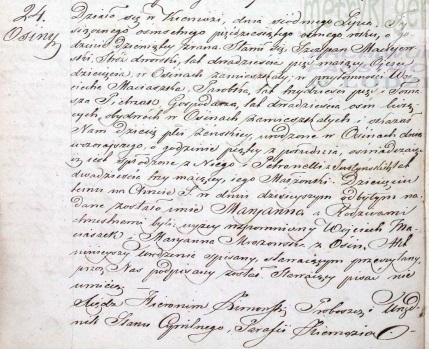 24.
Osiny
Działo się w Kiernozi, dnia siódmego Lipca, Ty-
siąc ośmset pięćdziesiątego ósmego roku, o go-
dzinie dziewiątej zrana. Stawił się, Szczepan Maciejew-
ski, Stróż dworski, lat dwadzieścia pięć mający, Ojciec
dziecięcia, w Osinach zamieszkały; w przytomności Woj-
ciecha Maciaszka, lat trzydzieści pięć i Toma-
sza Pietrzak Gospodarza, lat dwadzieścia ośm liczą-
cych, obydwóch w Osinach zamieszkałych i okazał
Nam dziecię płci żeńskiej, urodzone w Osinach dnia
wczorajszego, o godzinie piątej z południa, oświadczając
iż jest spłodzone z Niego i Petronelli z lat
dwadzieścia trzy mającej, jego Małżonki. Dziecięciu
temu na Chrzcie S. w dniu dzisiejszym odbytym na-
dane zostało imie Maryanna a Rodzicami
chrzestnemi byli: wyżej wspomniony Wojciech Ma-
ciaszek i Maryanna z Osin, Akt
niniejszy Stawiającym przeczytany,
przez Nas podpisany został, Stawający pisać nie
umieją.
Xiądz Hieronim Proboszcz i Urzęd-
nik Stanu Cywilnego, Parafii Kiernozia